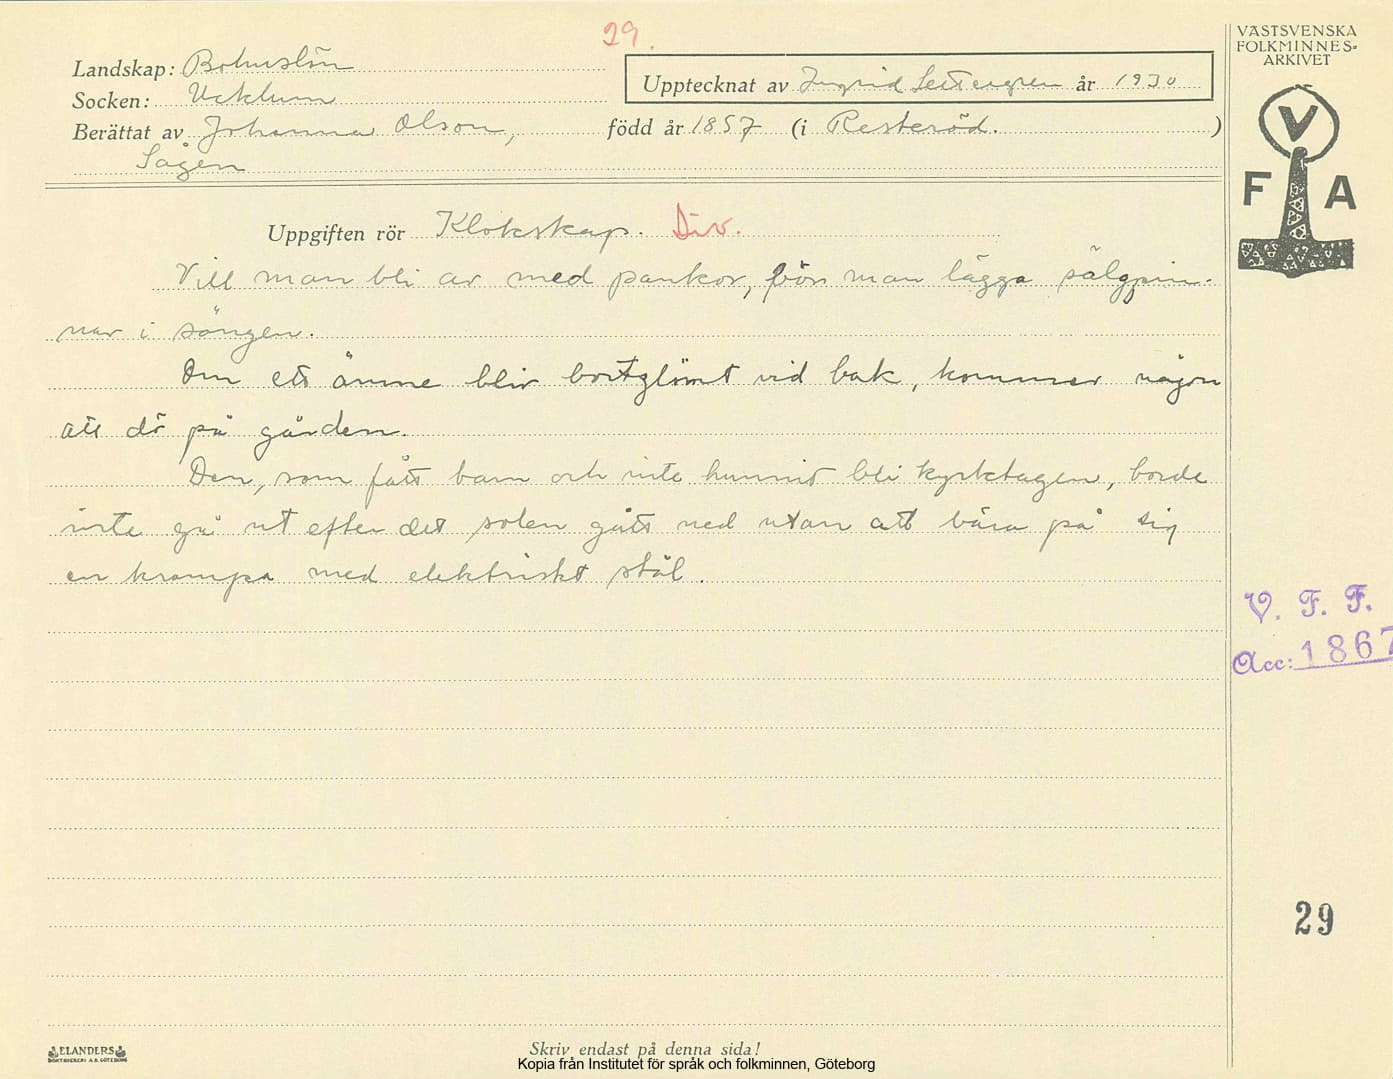 29.
VÄSTSVENSKA
FOLKMINNES-
ARKIVET
Landskap: Bohuslän
Upptecknat av Ingrid år 1930
Socken: Ucklum
Berättat av Johanna Olson, född år 1857 (i Resteröd.)
Sågen
V
F A
Uppgiften rör Klokskap. Div.
Vill man bli av med pankor, bör man lägga sälgpin-
nar i sängen.
Om ett ämne blir bortglömt vid bak, kommer någon
att dö på gården.
Den, som fått barn och inte hunnit bli kyrktagen, borde
inte gå ut efter det solen gått ned utan att bära på sig
en krampa med elektriskt stål.
V. F. F.
Acc: 1867
29
ELANDERS
BOKTRYCKERI A.B. GÖTEBORG
Skriv endast på denna sida!
Kopia från Institutet för språk och folkminnen, Göteborg